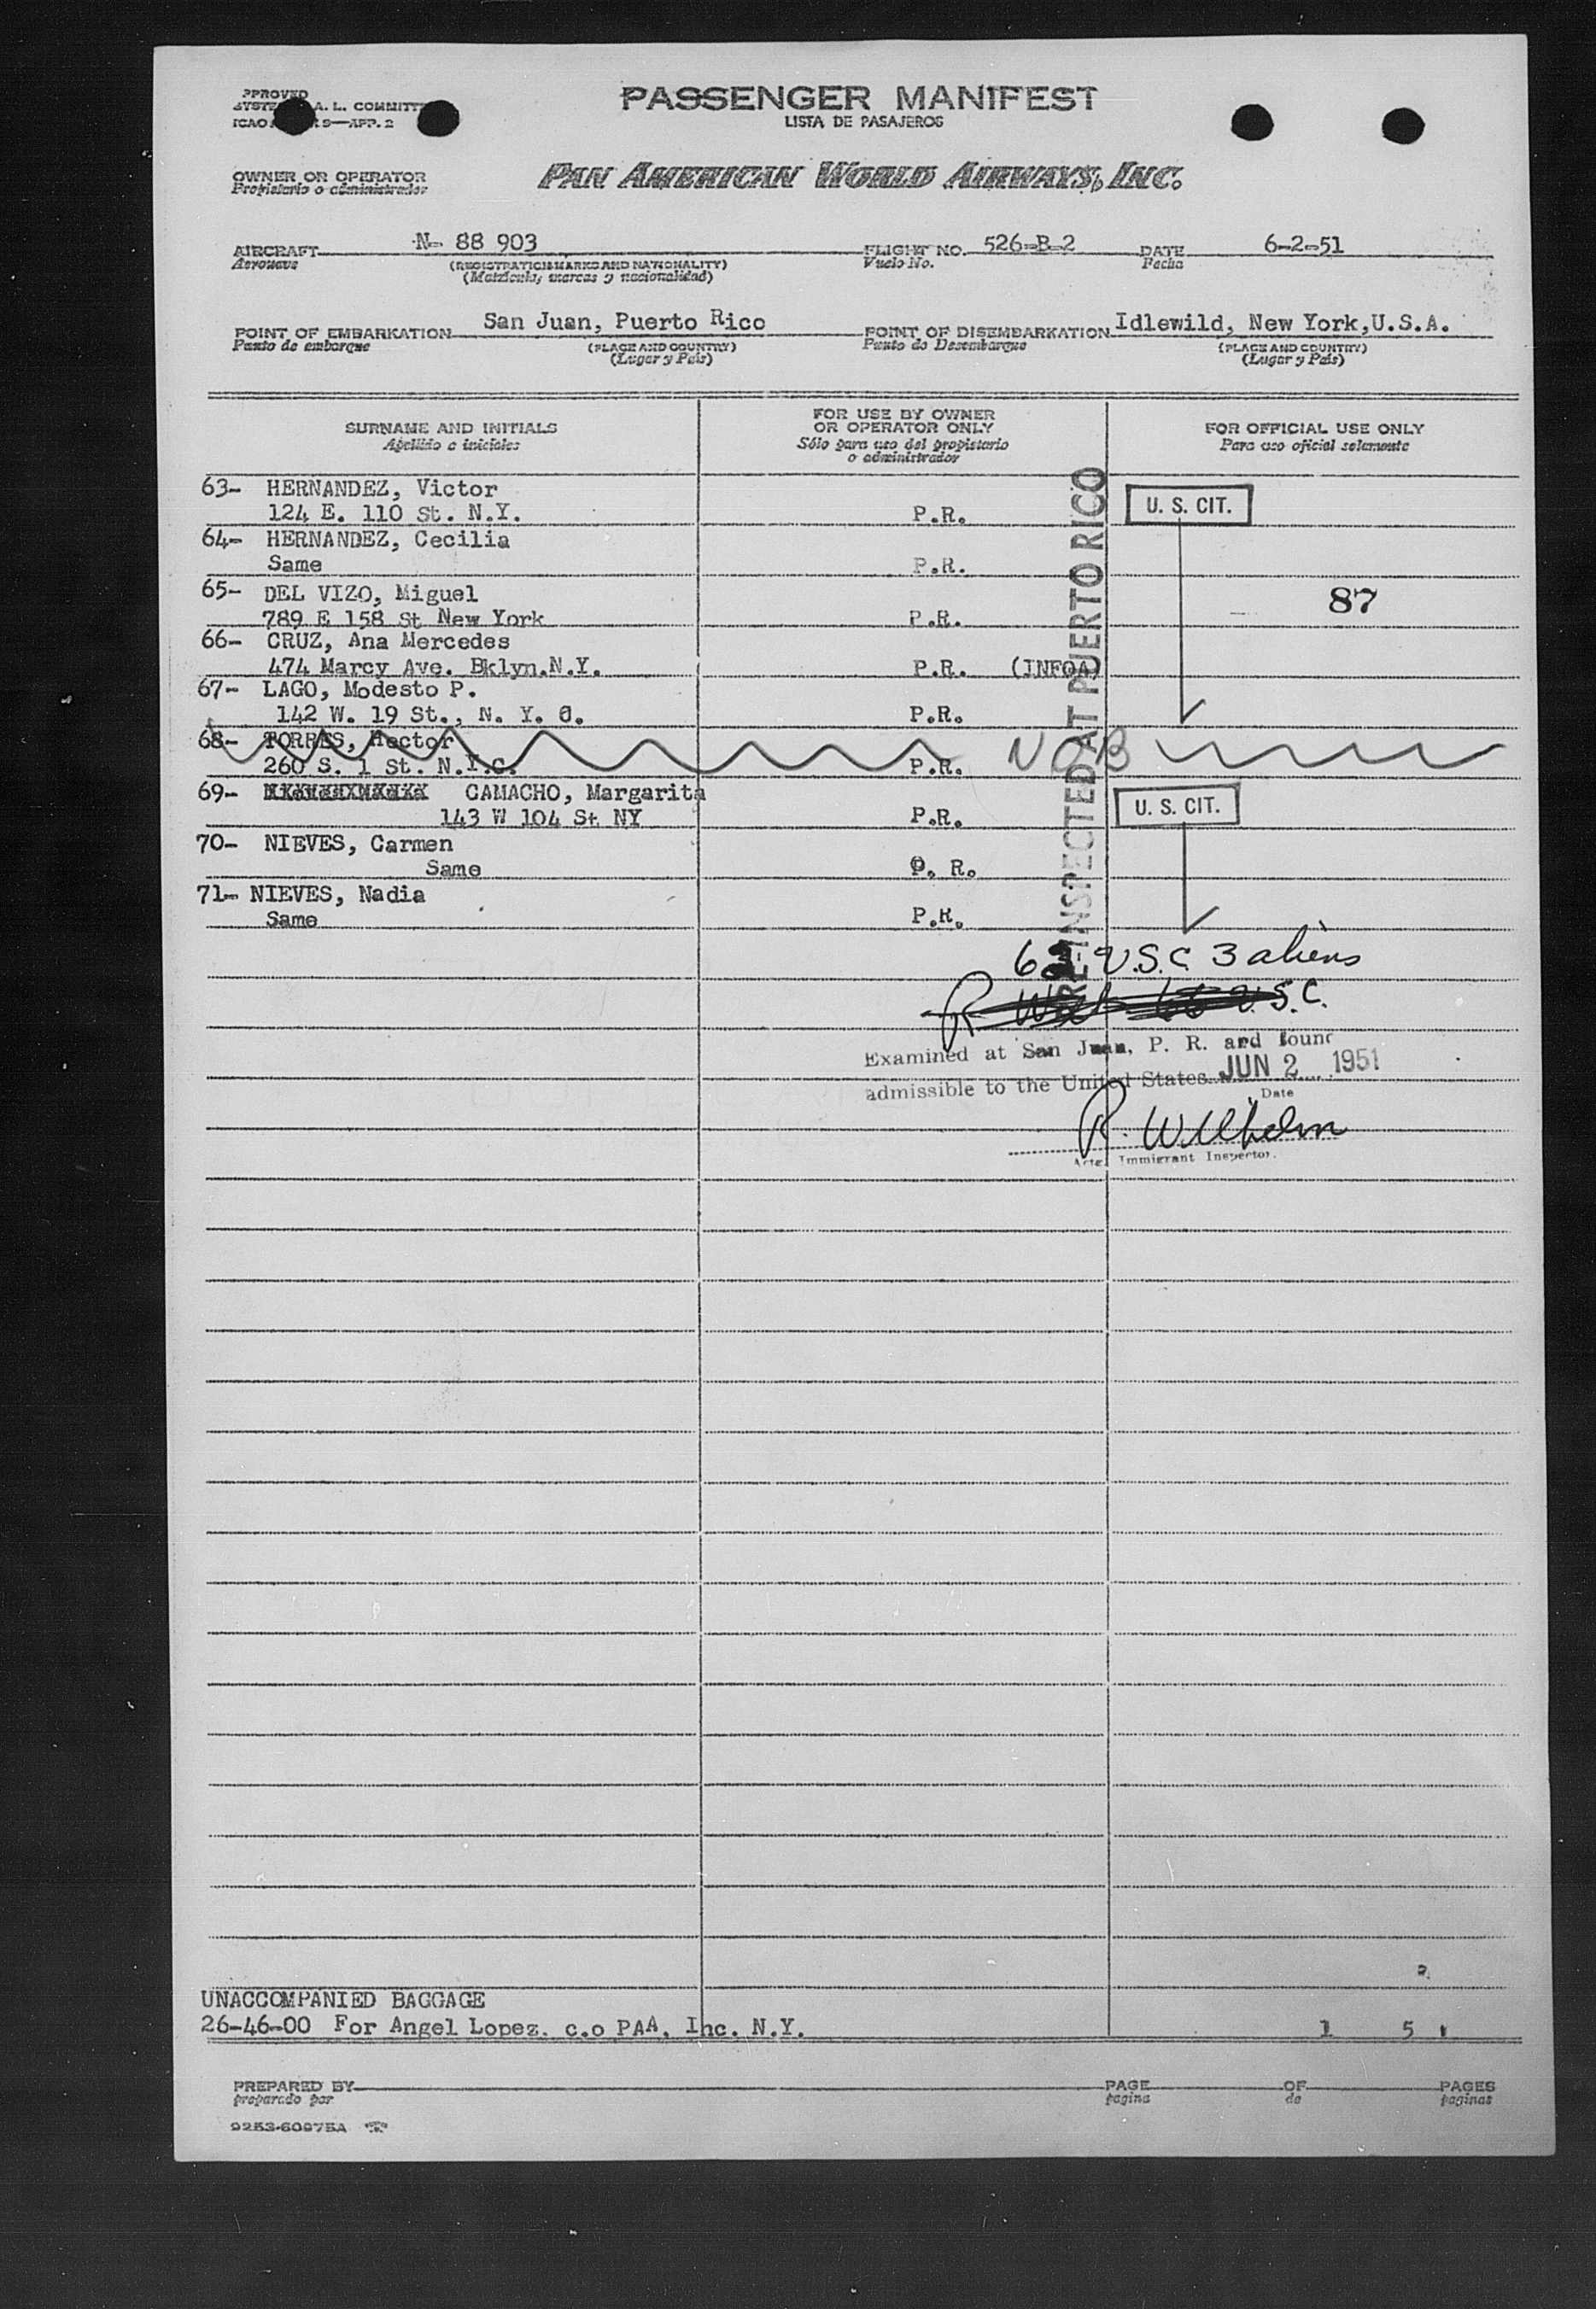 PPROVED
A. L. COMMITT
ICAO S—APP. 2
PASSENGER MANIFEST
LISTA DE PASAJEROS
OWNER OR OPERATOR
Propietario o administrador
PAN AMERICAN WORLD AIRWAYS, INC.
AIRCRAFT N- 88 903 FLIGHT NO. 526-B-2 DATE 6-2-51
Aeronave (REGISTRATION MARKS AND NATIONALITY) Vuelo No. Fecha
(Matrícula, marcas y nacionalidad)
POINT OF EMBARKATION San Juan, Puerto Rico POINT OF DISEMBARKATION Idlewild, New York,U.S.A.
Punto de embarque (PLACE AND COUNTRY) Punto de Desembarque (PLACE AND COUNTRY)
(Lugar y País) (Lugar y País)
SURNAME AND INITIALS FOR USE BY OWNER OR OPERATOR ONLY FOR OFFICIAL USE ONLY
Apellido e iniciales Sólo para uso del propietario o administrador Para uso oficial solamente
63- HERNANDEZ, Victor
124 E. 110 St. N.Y. P.R. U. S. CIT.
64- HERNANDEZ, Cecilia
Same P.R.
65- DEL VIZO, Miguel 87
789 E 158 St New York P.R.
66- CRUZ, Ana Mercedes
474 Marcy Ave. Bklyn.N.Y. P.R. (INFOA)
67- LAGO, Modesto P.
142 W. 19 St., N. Y. C. P.R.
68- TORRES, Hector NOB
260 S. 1 St. N.Y.C. P.R.
69- CAMACHO, Margarita U. S. CIT.
143 W 104 St NY P.R.
70- NIEVES, Carmen
Same P. R.
71- NIEVES, Nadia
Same P.R.
RE-INSPECTED AT PUERTO RICO
U.S.C. 3 aliens
U.S.C.
Examined at San Juan, P. R. and found
admissible to the United States JUN 2 1951
Date
R. Wilhelm
Immigrant Inspector.
UNACCOMPANIED BAGGAGE
26-46-00 For Angel Lopez. c.o PAA, Inc. N.Y. 1 5
PREPARED BY PAGE OF PAGES
preparado por pagina de paginas
9253-60975A